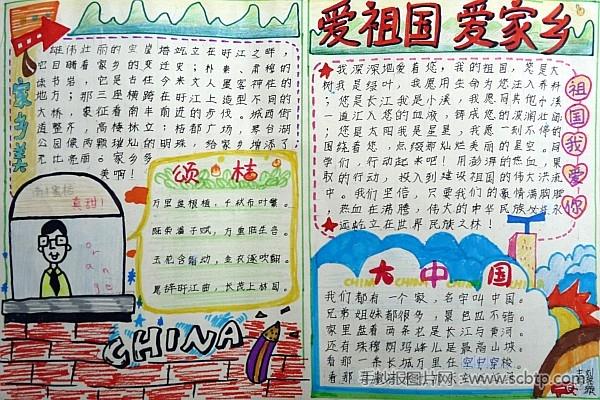 家乡美
雄伟壮丽的宝岩塔屹立在盱江之畔，
它目睹着家乡的变迁史；朴素、肃穆的
读书岩，它是古往今来文人墨客神往的
地方；那三座横跨在盱江上造型不同的
大桥，象征着南丰前进的步伐。城西街
道整齐，高楼林立；桔都广场、
公园像两颗璀灿的明珠，给家乡增添了
无比亮丽。家乡多
美啊！
颂桔
万里盘根植，千秋布叶繁。
既荣潘子赋，方重陆生言。
玉花含霜动，金衣逐吹翻。
愿辞盱江曲，长茂上林园。
真甜！
orange
CHINA
爱祖国 爱家乡
我深深地爱着您，我的祖国，您是大
树我是绿叶，我愿用生命为您注入养料
；您是长江我是小溪，我愿同其他小溪
一道汇入您的血液，铸成您的波澜壮阔
；您是太阳我是星星，我愿一刻不停的
围绕着您，点缀那灿烂美丽的星空。同
学们，行动起来吧！用澎湃的热血，果
敢的行动，投入到建设祖国的伟大洪流
中。我们坚信，只要我们的豪情满胸膛
，热血在沸腾，伟大的中华民族必将永
远屹立在世界民族之林！
祖国我爱你
大中国
CHINA CHINA CHINA CHINA
我们都有一个家，名字叫中国。
兄弟姐妹都很多，景色也不错。
家里盘着两条龙是长江与黄河。
还有珠穆朗玛峰儿是最高山坡。
看那一条长城万里在空中穿梭
看那
手抄报图片网 www.scbtp.com